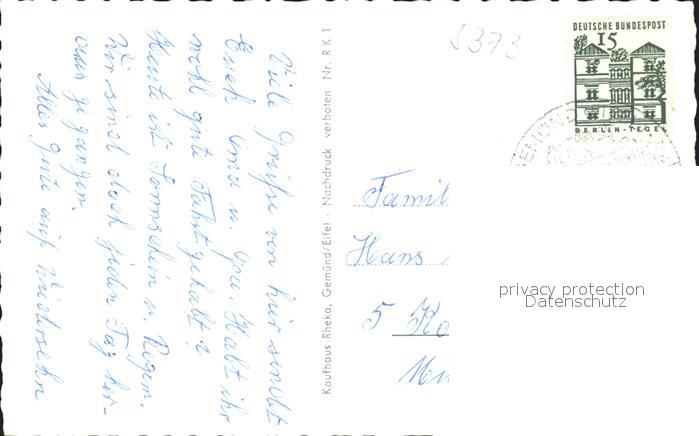 Viele Grüße von hier sendet
Euch Oma u. Opa. Habt ihr
wohl gute Fahrt gehabt?
Heute ist Sonnschein u. Regen.
Wir sind doch jeden Tag her-
aus gegangen.
Alles gute auf Wiedersehn
Kaufhaus Rheka, Gemünd/Eifel · Nachdruck verboten Nr. RK1
5373
DEUTSCHE BUNDESPOST
15
BERLIN-TEGEL
Famil
Hans
5 Kö
privacy protection
Datenschutz